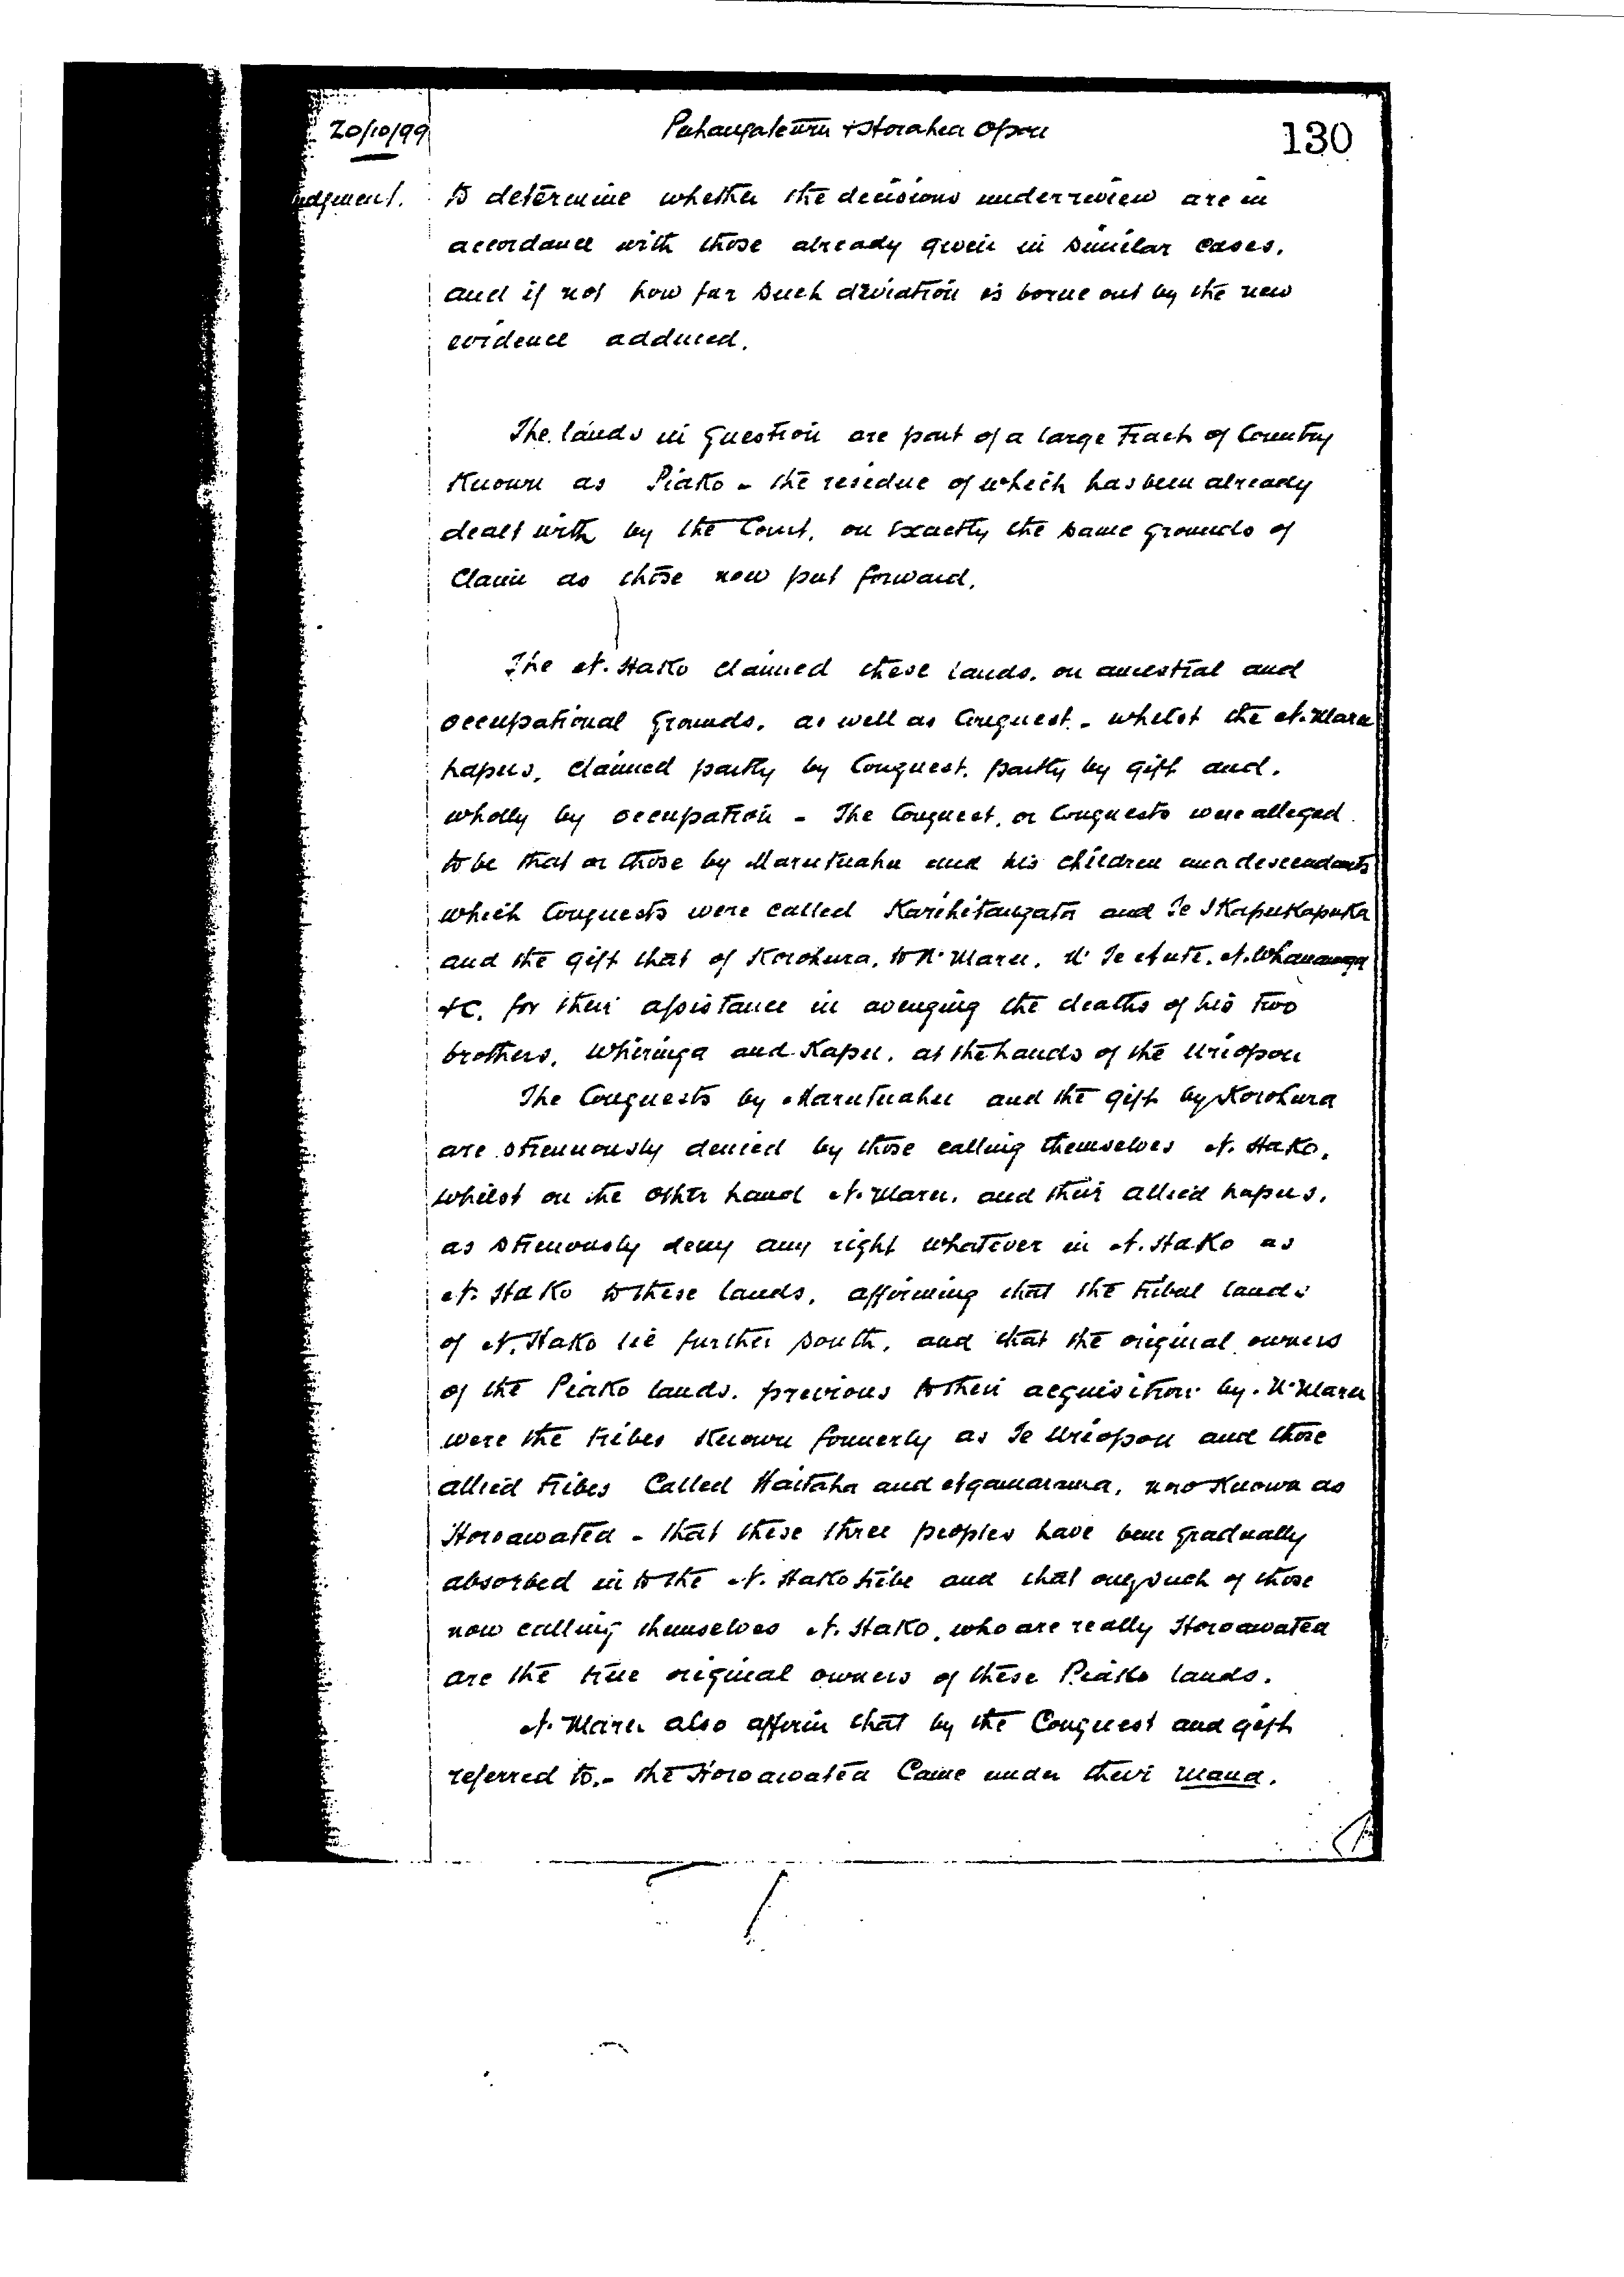 20/10/99
Puhangateuru & Horahia Opou
130
udgment.
to determine whether the decisions under review are in
accordance with those already given in similar cases,
and if not how far such deviation is borne out by the new
evidence adduced.
The lands in question are part of a large Tract of Country
Known as Piako - the residue of which has been already
dealt with by the Court, on exactly the same grounds of
Claim as those now put forward.
The N. Hako claimed these lands, on ancestral and
occupational Grounds, as well as Conquest - whilst the N. Maru
hapus, claimed partly by Conquest, partly by gift and,
wholly by occupation - The Conquest, or Conquests were alleged
to be that or those by Marutuahu and his children and descendants
which Conquests were called Karihitangata and Te Ikapukapuka
and the gift that of Korohura, to N. Maru, N. Te Aute, N. Whanaunga
&C, for their assistance in avenging the deaths of his two
brothers, Whiringa and Kapu, at the hands of the Uriopou
The Conquests by Marutuahu and the gift by Korohura
are strenuously denied by those calling themselves N. Hako,
whilst on the other hand N. Maru, and their allied hapus,
as strenuously deny any right whatever in N. Hako as
N. Hako to these lands, affirming that the tribal lands
of N. Hako lie further South, and that the original owners
of the Piako lands, previous to their acquisition by N. Maru
were the tribes Known formerly as Te Uriopou and those
allied tribes Called Waitaha and Ngamarama, now Known as
Horoawatea - that these three peoples have been gradually
absorbed into the N. Hako tribe and that only such of those
now calling themselves N. Hako, who are really Horoawatea
are the true original owners of these Piako lands.
N. Maru also affirm that by the Conquest and gift
referred to, - the Horoawatea Came under their mana.